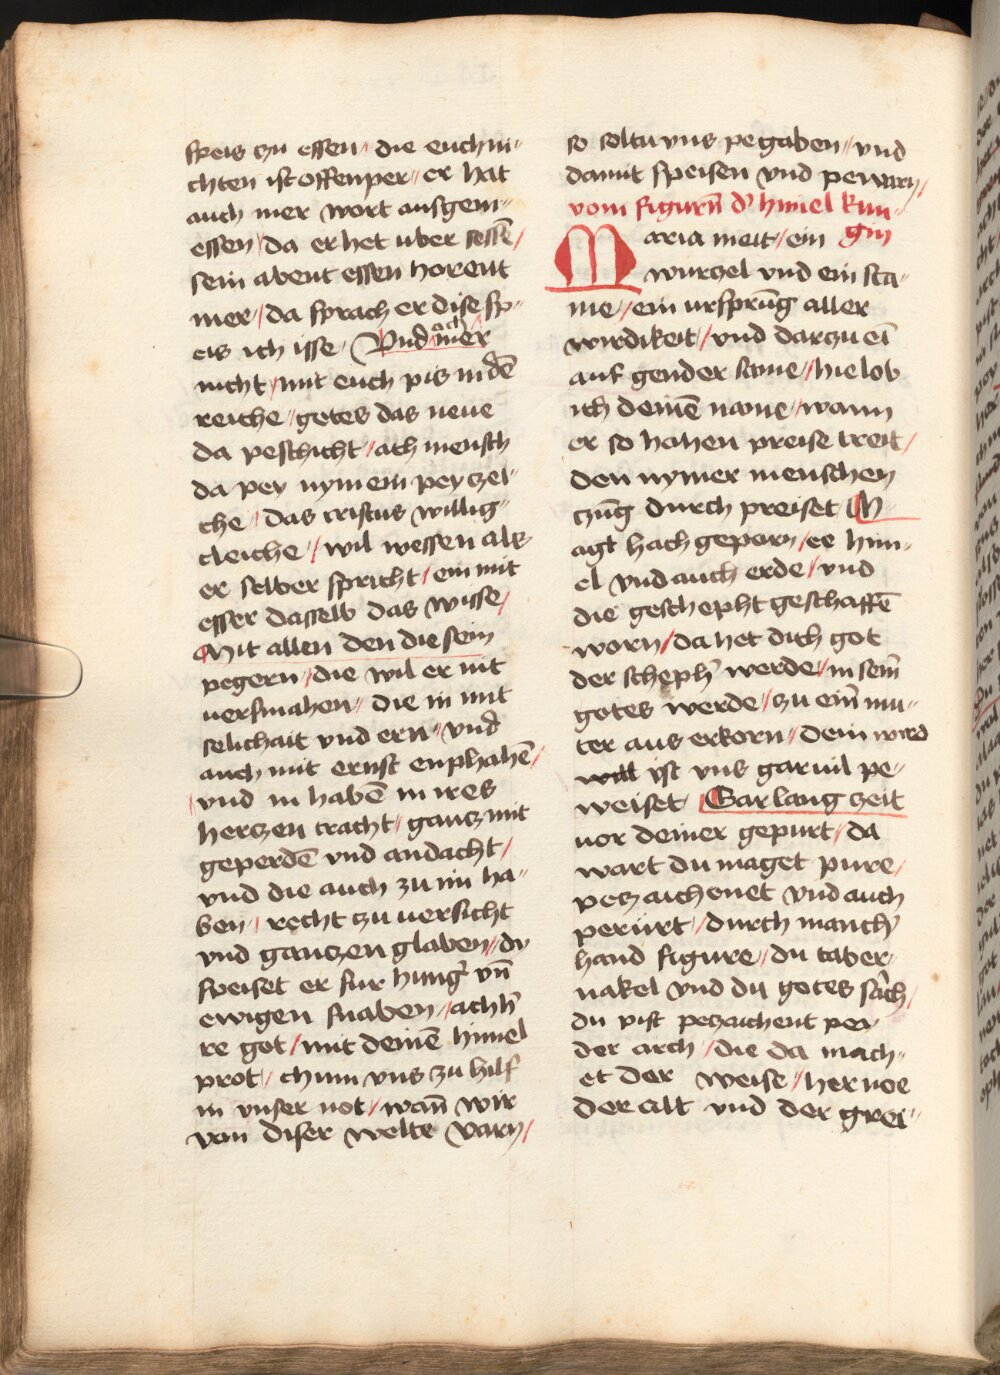 speis zu essen / die euch ni=
chten ist offenper // er hat
auch mer wort ausgem=
essen / da er het uber sessē /
sein abent essen horent
mer / da sprach er dise sp=
eis ich isse / Vnd ach mer
nicht / mit euch pis in dē
reiche / gotes das neue
da peschicht / ach mensch
da pey nym ein pey zei=
che / das cristus willig=
cleiche / wil wessen als
er selber spricht / ein mit
esser dasselb das wisse /
Mit allen den die sein
pegern / die wil er nit
uersmahen / die in mit
selichait vnd ern // vnd
auch mit ernst enphahē /
vnd in habē in ires
herczen tracht / gancz mit
geperdē vnd andacht /
vnd die auch zu im ha=
ben / recht zu uersicht
vnd ganczen glaben // dy
speiset er fur hung̛ vn̄
ewigen snaben / ach h̛
re got / mit deinē himel
prot / chum vns zu hilf
in vnser not / wan̄ wir
von diser welte varn /
so soltu vns pegaben // vnd
damit speisen vnd pewarn /
vom figurn̄ d̛ himel kun=
gin
Maria meit / ein
wurczel vnd ein sta=
me // ein ursprūg aller
wirdikeit / vnd darzu eī
auf gender same / hie lob
ich deinē name / wann
er so hohen preise treit /
den nymer menschen
czūg durch preiset M=
agt hach geporn / ee him=
el vnd auch erde / vnd
die geschepht geschaffē
worn / da het dich got
der scheph̛ werde / in seīm
gotes werde / zu eīm mu=
ter aus erkorn / dein wird
ist vns gar uil pe=
weiset / Gar lang zeit
uor deiner gepurt / da
wart du maget pure /
peczaichenet vnd auch
perurt / durch manch̛
hand figure / du taber=
nakel vnd du gotes sach /
du pist peczaichent pey
der arch / die da mach=
et der weise / her noe
der alt vnd der grei=